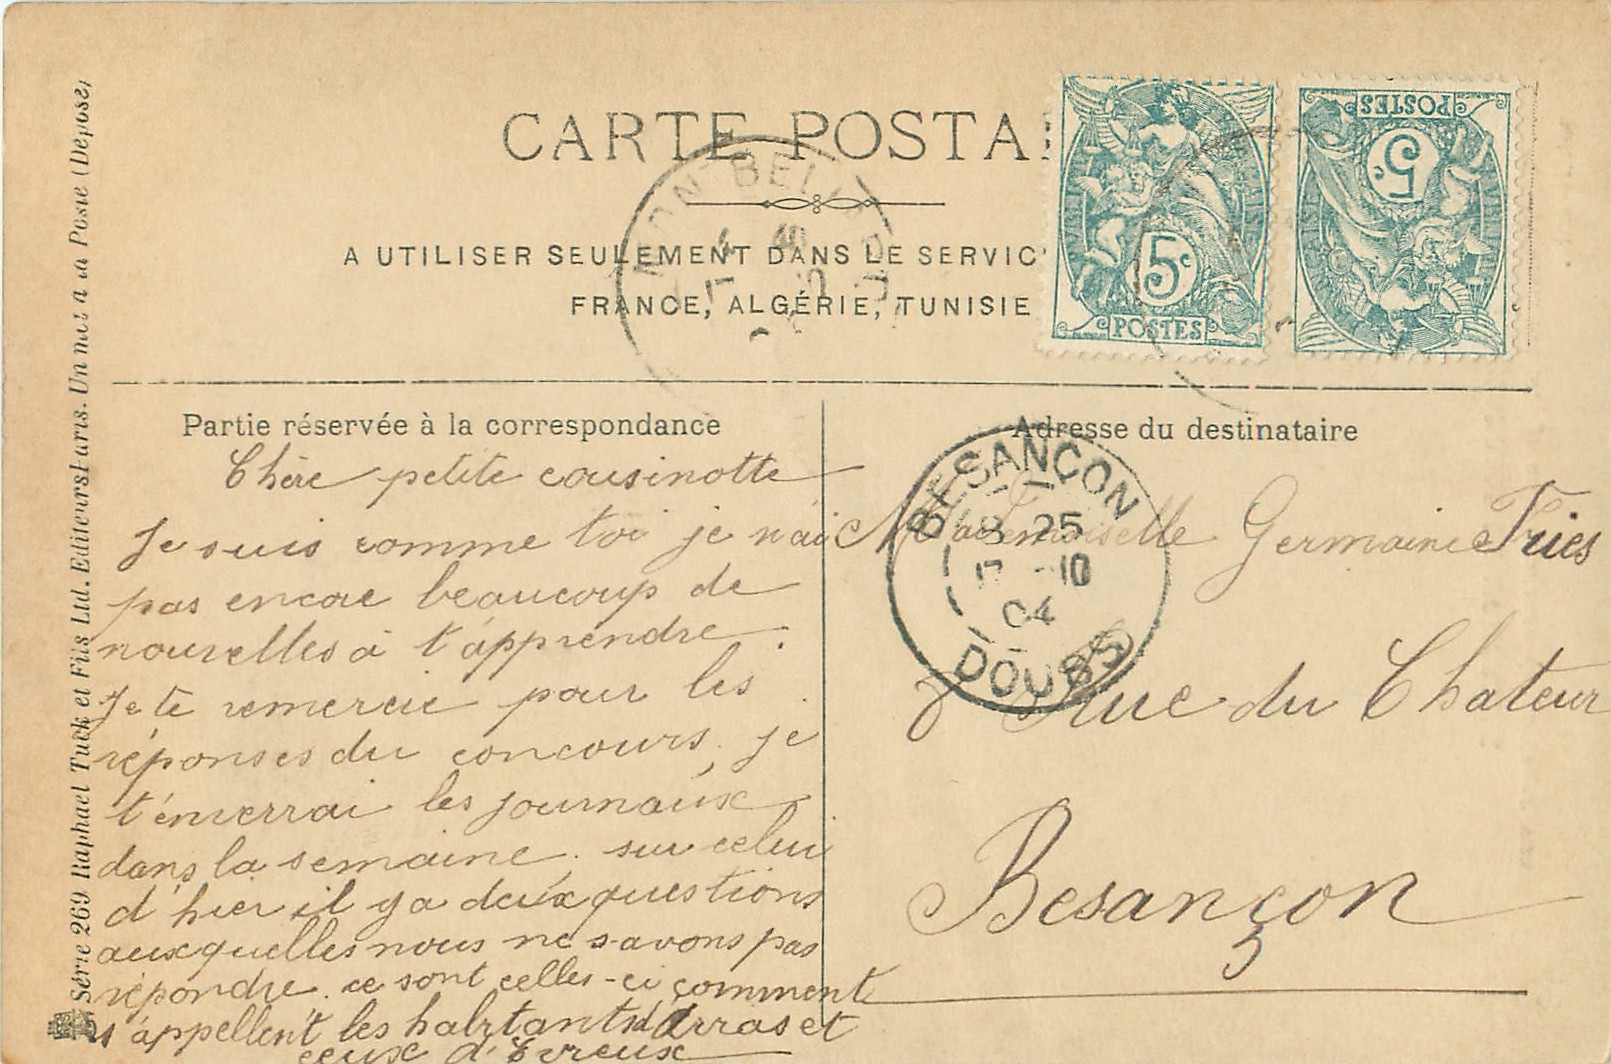 CARTE POSTA
A UTILISER SEULEMENT DANS LE SERVIC
FRANCE, ALGÉRIE, TUNISIE
5c
POSTES
POSTES
5c
MONTBELIARD
Partie réservée à la correspondance
Chère petite cousinotte
Je suis comme toi je n'ai
pas encore beaucoup de
nouvelles à t'apprendre.
Je te remercie pour les
réponses du concours. je
t'enverrai les journaux
dans la semaine. sur celui
d'hier il y a deux questions
auxquelles nous ne savons pas
répondre. ce sont celles-ci comment
s'appellent les habitants d'Arras et
ceux d'Evreux
Adresse du destinataire
BESANÇON
8 25
10
04
DOUBS
Mademoiselle Germaine Fries
8 Rue du Chateur
Besançon
Série 269 Raphael Tuck et Fils Ltd. Editeurs Paris. Un mot à la Poste (Déposé)